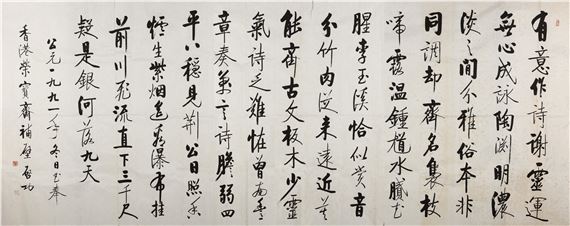 有意作詩謝靈運
無心成詠陶淵明濃
淡之間分雅俗本非
同調却齊名枝
啼露温鍾馗水膩花
腥李玉溪恰似賞音
分竹肉從來遠近莫
能齊古文板木少靈
氣詩乏難恠曾南豐
章奏萬言詩膽弱四
平八穩見荊公日照香
爐生紫烟遙看瀑布挂
前川飛流直下三千尺
疑是銀河落九天
公元一九九一年冬日書奉
香港榮寶齋補壁 啓功